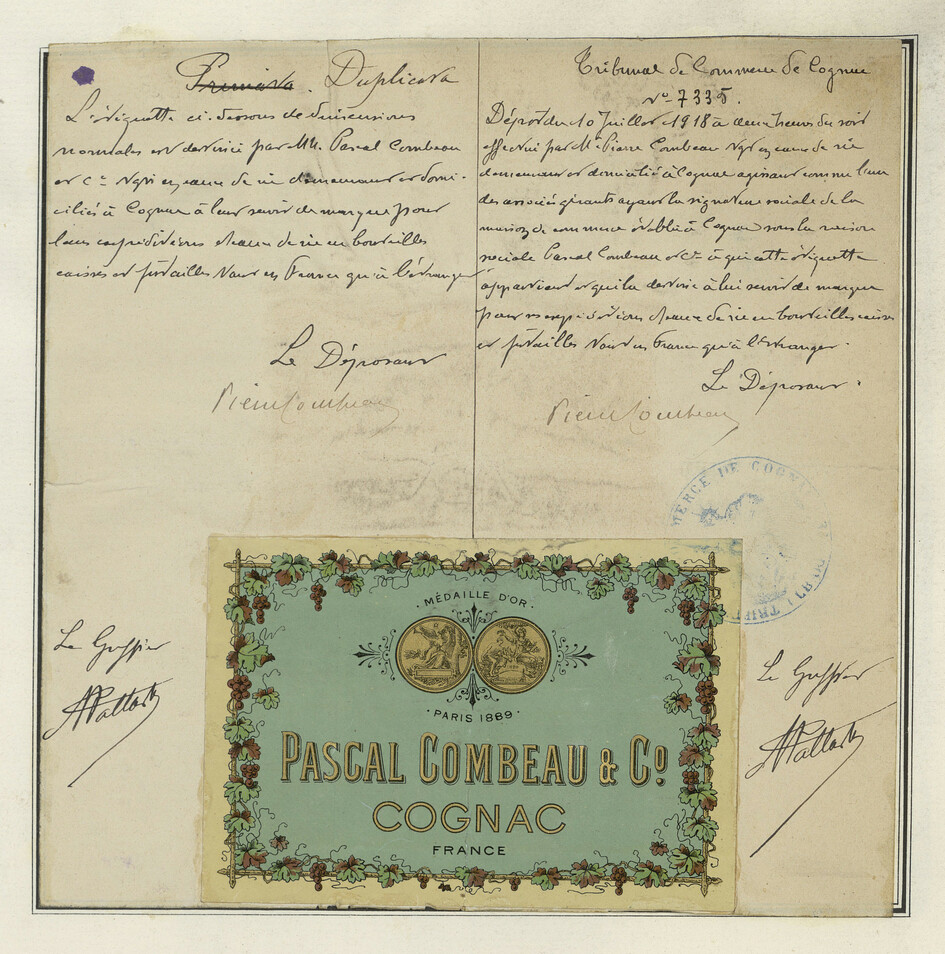 Primata. Duplicata
L'étiquette ci-dessous de dimensions
normales est destinée par MM. Pascal Combeau
et Cie Négts en eaux de vie demeurant et domi-
ciliés à Cognac à leur servir de marque pour
leurs expéditions d'eaux de vie en bouteilles
caisses et futailles tant en France qu'à l'étranger
Le Déposant
Pierre Combeau
Tribunal de Commerce de Cognac
No 7335.
Dépôt du 10 Juillet 1918 à deux heures du soir
effectué par Mr Pierre Combeau Négt en eaux de vie
demeurant et domicilié à Cognac agissant comme l'un
des associés gérants ayant la signature sociale de la
maison de commerce établie à Cognac sous la raison
sociale Pascal Combeau et Cie à qui cette étiquette
appartient et qui la destine à lui servir de marque
pour ses expéditions d'eaux de vie en bouteilles caisses
et futailles tant en France qu'à l'étranger.
Le Déposant.
Pierre Combeau
MERCE DE COGNA
TRIB
Le Greffier
Le Greffier
· MÉDAILLE D'OR ·
· PARIS 1869 ·
PASCAL COMBEAU & Co
COGNAC
FRANCE